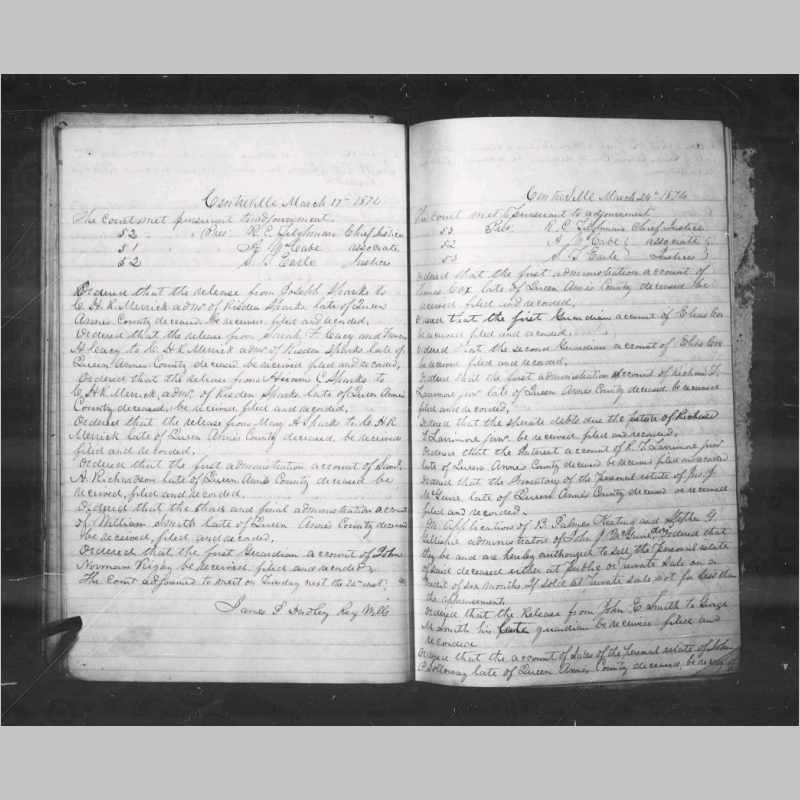 Centreville March 17th 1874
The Court met pursuant to adjournment
52 " Pres: R. E. Tilghman Chief Justice
51 " A McCabe associate
52 S. T. Earle Justices
Ordered that the release from Joseph Sparks to
C. H. R. Merrick admr. of Risden Sparks late of Queen
Annes County deceased be received filed and recorded.
Ordered that the release from Sarah F. Leacy and
H Leacy to C. H. R. Merrick admr. of Risden Sparks late of
Queen Annes County deceased be received filed and recorded,
Ordered that the release from C. Sparks to
C. H. R. Merrick, admr. of Risden Sparks late of Queen Annes
County deceased, be received filed and recorded,
Ordered that the release from Mary A Sparks to C. H R
Merrick late of Queen Annes County deceased, be received
filed and recorded,
Ordered that the first administration account of
A. Richardson late of Queen Annes County deceased be
received, filed and recorded
Ordered that the third and final administration account
of William Smith late of Queen Annes County deceased
be received, filed and recorded,
Ordered that the first Guardian account of John
Norman Rigby be received filed and recorded,
The Court adjourned to meet on Tuesday next the 24th inst,
James F. Reg Wills
Centreville March 24th 1874
The court met pursuant to adjournment
53 Pres: R. E. Tilghman Chief Justice
52 A McCabe associate
53 S. T. Earle Justices
Ordered that the first administration account of
James Cox late of Queen Annes County deceased be
received filed and recorded.
Ordered that the first Guardian account of Elias Cox
be received filed and recorded.
Ordered that the second Guardian account of Elias Cox
be receive filed and recorded,
Ordered that the first administration account of Richard T.
Larrimore junr. late of Queen Annes County deceased be received
filed and recorded,
Ordered that the sperate debts due the estate of Richard
T Larrimore junr. be received, filed and recorded,
Ordered that the Interest account of R. T. Larrimore junr
late of Queen Annes County deceased be received filed and recorded
Ordered that the Inventory of the personal estate of Jno J.
McGuire, late of Queen Annes County deceased be received
filed and recorded.
On application of B. Palmer Keating and Stephen G.
administrators of John J. McGuire, decd. Ordered that
they be and are hereby authorized to sell the personal estate
of said deceased either at public or private sale on a
credit of six months if sold at private sale not for less than
the appraisement.
Ordered that the Release from John E Smith to George
M Smith his late guardian be received filed and
recorded
Ordered that the account of Sales of the personal estate of John
late of Queen Annes County deceased, be